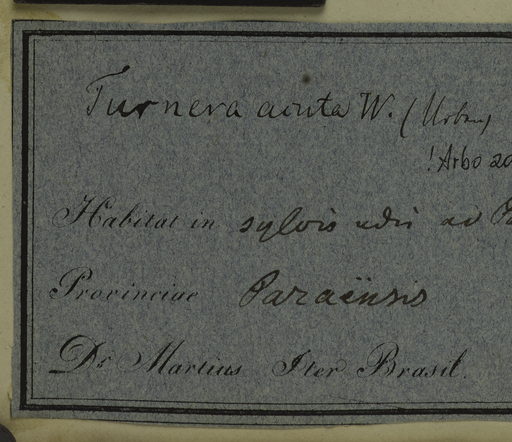 Turnera acuta W. (Urban)
! Arbo 20
Habitat in sylvis udis ad
Provinciae Paraënsis
Dr Martius Iter Brasil.